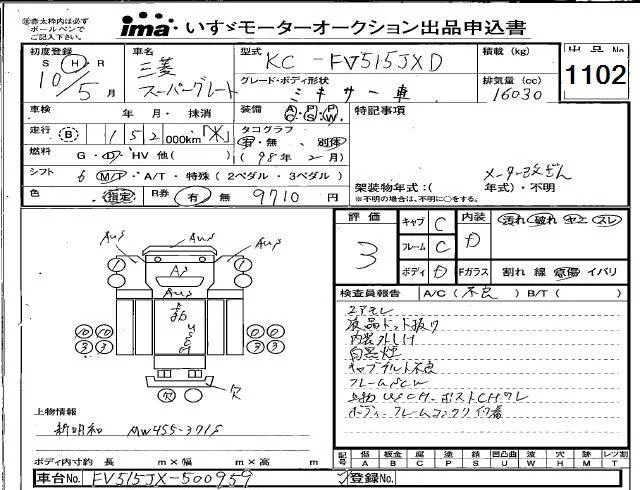 ※赤太枠内は必ず
ボールペンで
ご記入下さい。
ima いすゞモーターオークション出品申込書
初度登録 S H R 10年 5月
車名 三菱 スーパーグレート
型式 KC-FV515JXD
積載 (kg)
出品No
1102
グレード・ボディ形状 ミキサー車
排気量 (cc) 16030
車検 年 月・ 抹消
装備 AC PS PW
特記事項
走行 B 152000km「米」
タコグラフ 有・無 別体 (98年2月)
燃料 G・D HV 他( )
シフト 6 M/P・A/T・特殊(2ペダル・3ペダル)
メーター改ざん
架装物年式:( 年式)・不明
※不明の場合は、不明に〇をする。
色 指定
R券 有 無 9710円
評価 3
キャブ C
フレーム C
ボディ D
内装 D
Fガラス
汚れ 破れ ヤニ スレ
割れ 線 点傷 イバリ
検査員報告 A/C(不良) B/T( )
エアモレ
液晶ドット抜け
内装外しけ
白黒煙
キャブチルト不良
ボディ・フレームコンクリ付着
AUS AUS AUS
AS
AUS
欠 欠
上物情報
新明和 MW455-371S
ボディ内寸約 長 m×幅 m×高 m
記号 傷A 板金B 腐C 塗P 錆S 凹U 凸凹曲W 波U 穴H 跡M レツ割T
車台No. FV515JX-500959
登録No.